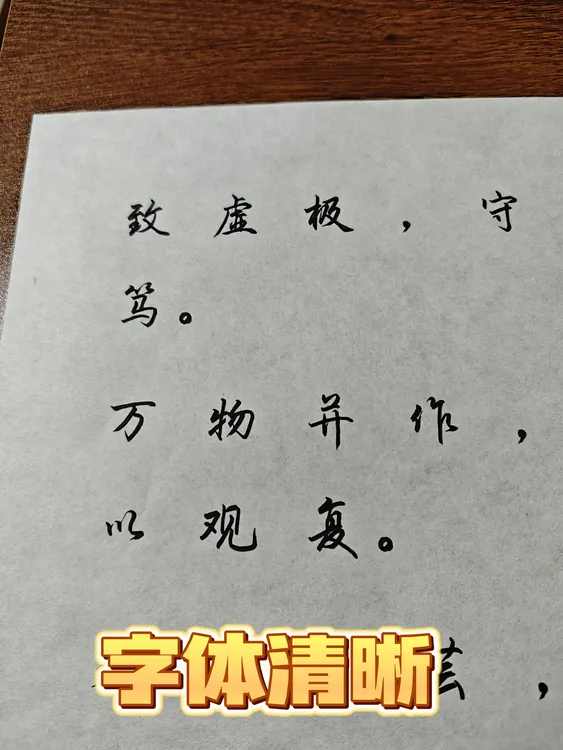 致虚极，守
笃。
万物并作，
以观复。
芸，
字体清晰